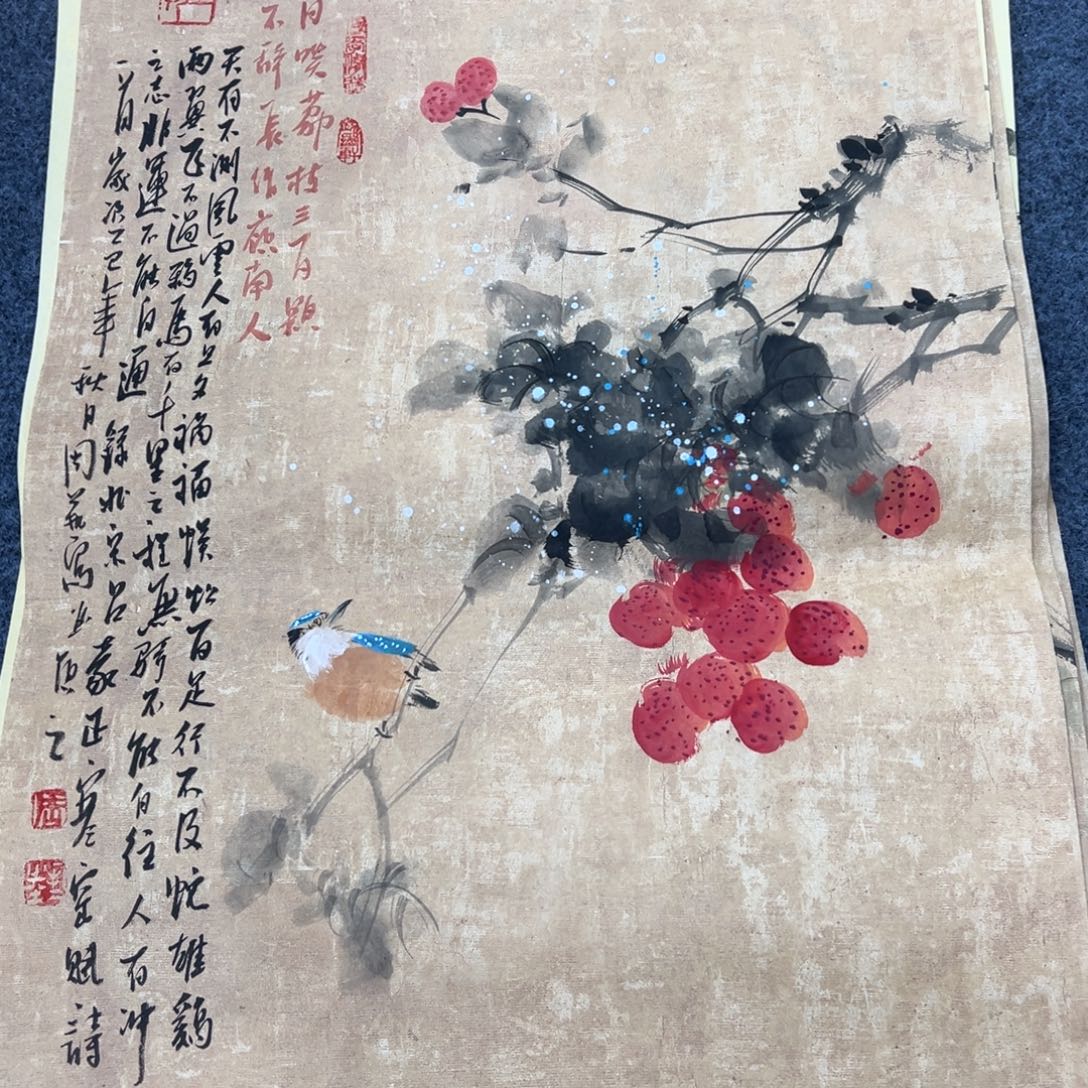 日啖荔枝三百顆
不辞長作嶺南人
天有不測風雲人有旦夕禍福蜈蚣百足行不及蛇雄鷄
兩翼飛不過鴉馬有千里之程無騎不能自往人有冲
之志非運不能自通錄北宋吕蒙正寒窑賦詩
一首歲次乙巳年秋日周寫並題之